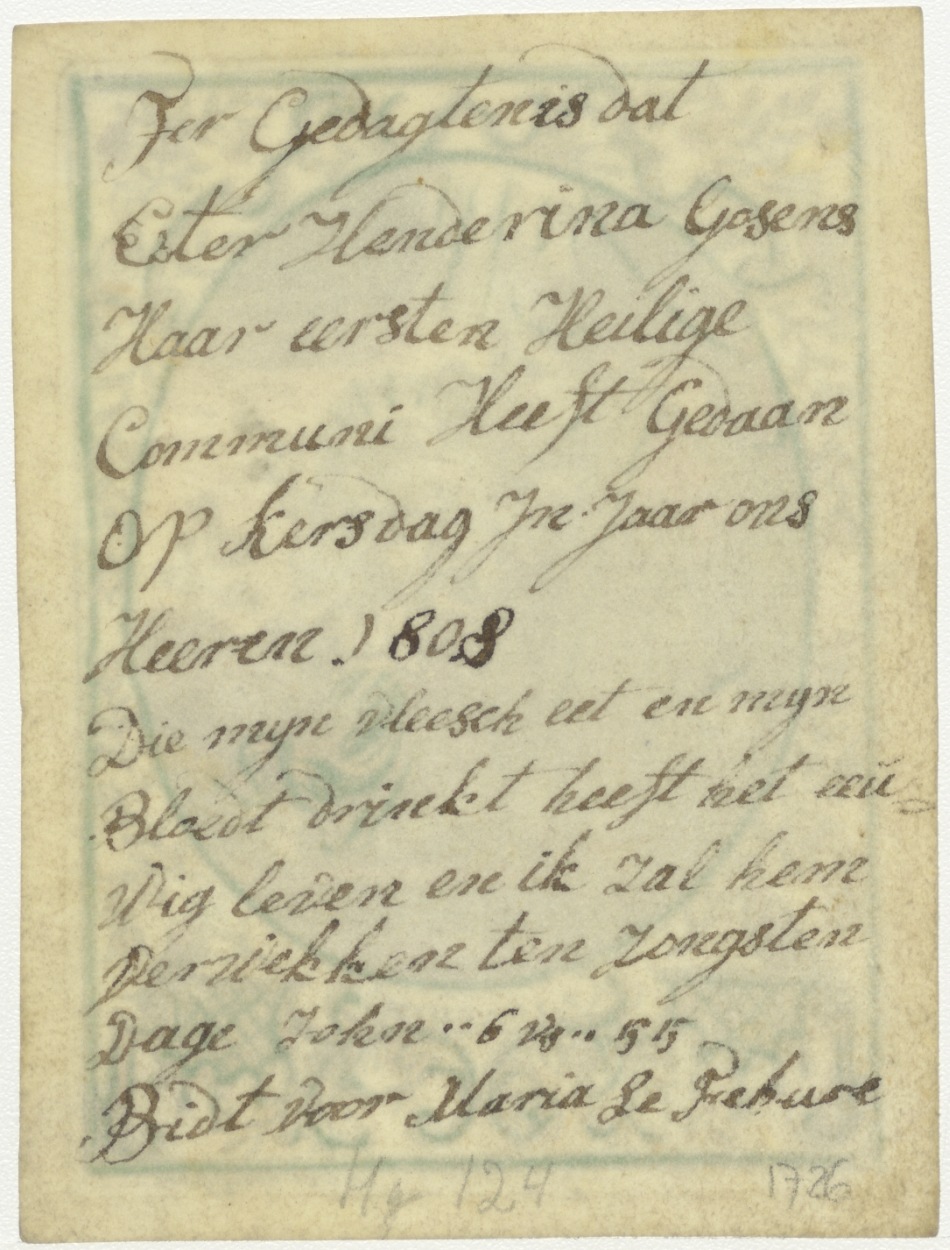 Ter Gedagtenis dat
Ester Henderina Gosens
Haar eersten Heilige
Communi Heeft Gedaan
Op kersdag In Jaar ons
Heeren 1808
Die myn vleesch eet en myn
Bloedt drinkt heeft het eeu=
Wig leven en ik zal hem
Verwekken ten Jongsten
Dage John·· 6 vs·· 55
Bidt voor Maria Le Febure
Hg 124 1726